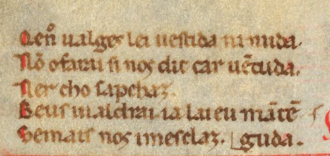 Qenꝰ ualges lei uestida ni nuda.
Nō o farai si nos dic car uētuda.
Ner cho sapchaz.
Beus ualdrai ia lai eu mātē
Semals nos i mesclaz. guda.